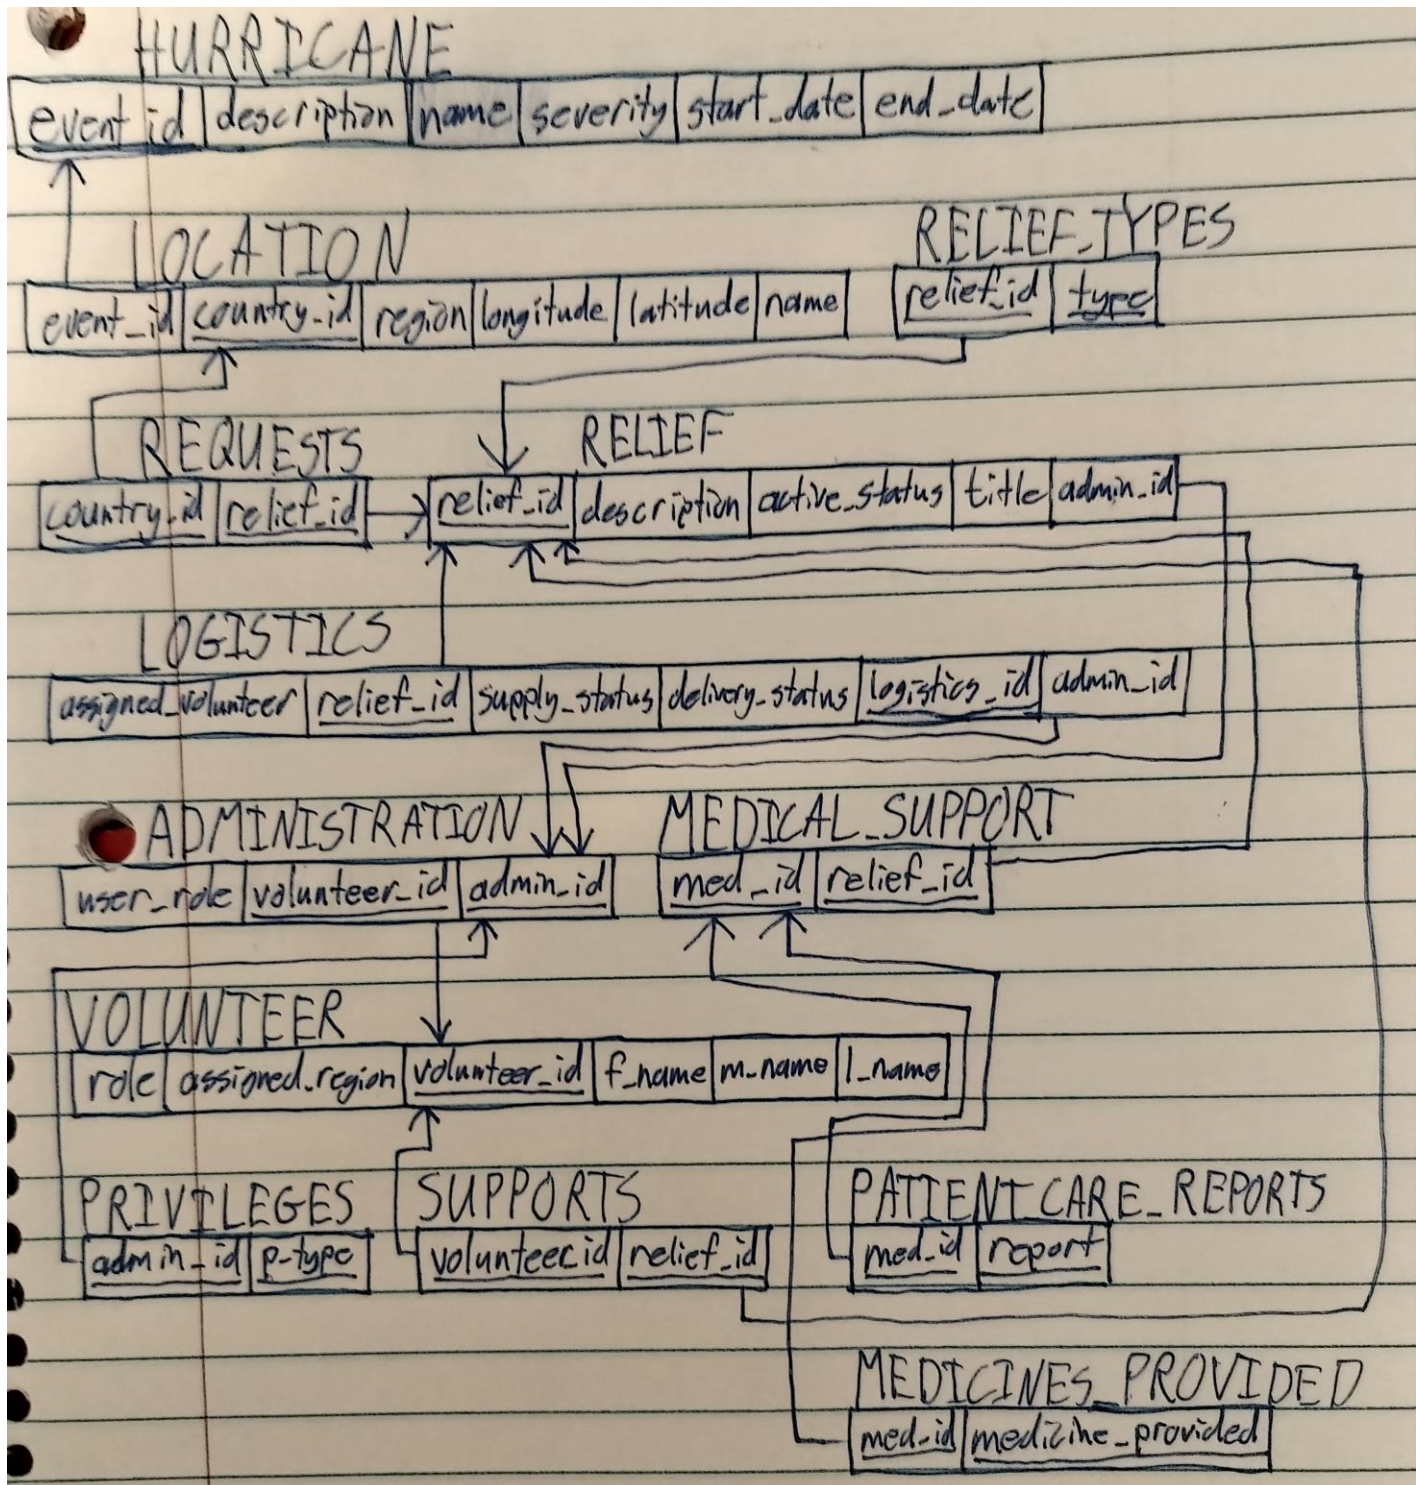 HURRICANE
event_id description name severity start_date end_date
LOCATION
event_id country_id region longitude latitude name
RELIEF_TYPES
relief_id type
REQUESTS
country_id relief_id
RELIEF
relief_id description active_status title admin_id
LOGISTICS
assigned_volunteer relief_id supply_status delivery_status logistics_id admin_id
ADMINISTRATION
user_role volunteer_id admin_id
MEDICAL_SUPPORT
med_id relief_id
VOLUNTEER
role assigned_region volunteer_id f_name m_name l_name
PRIVILEGES
admin_id p-type
SUPPORTS
volunteer_id relief_id
PATIENTCARE_REPORTS
med_id report
MEDICINES_PROVIDED
med_id medicine_provided